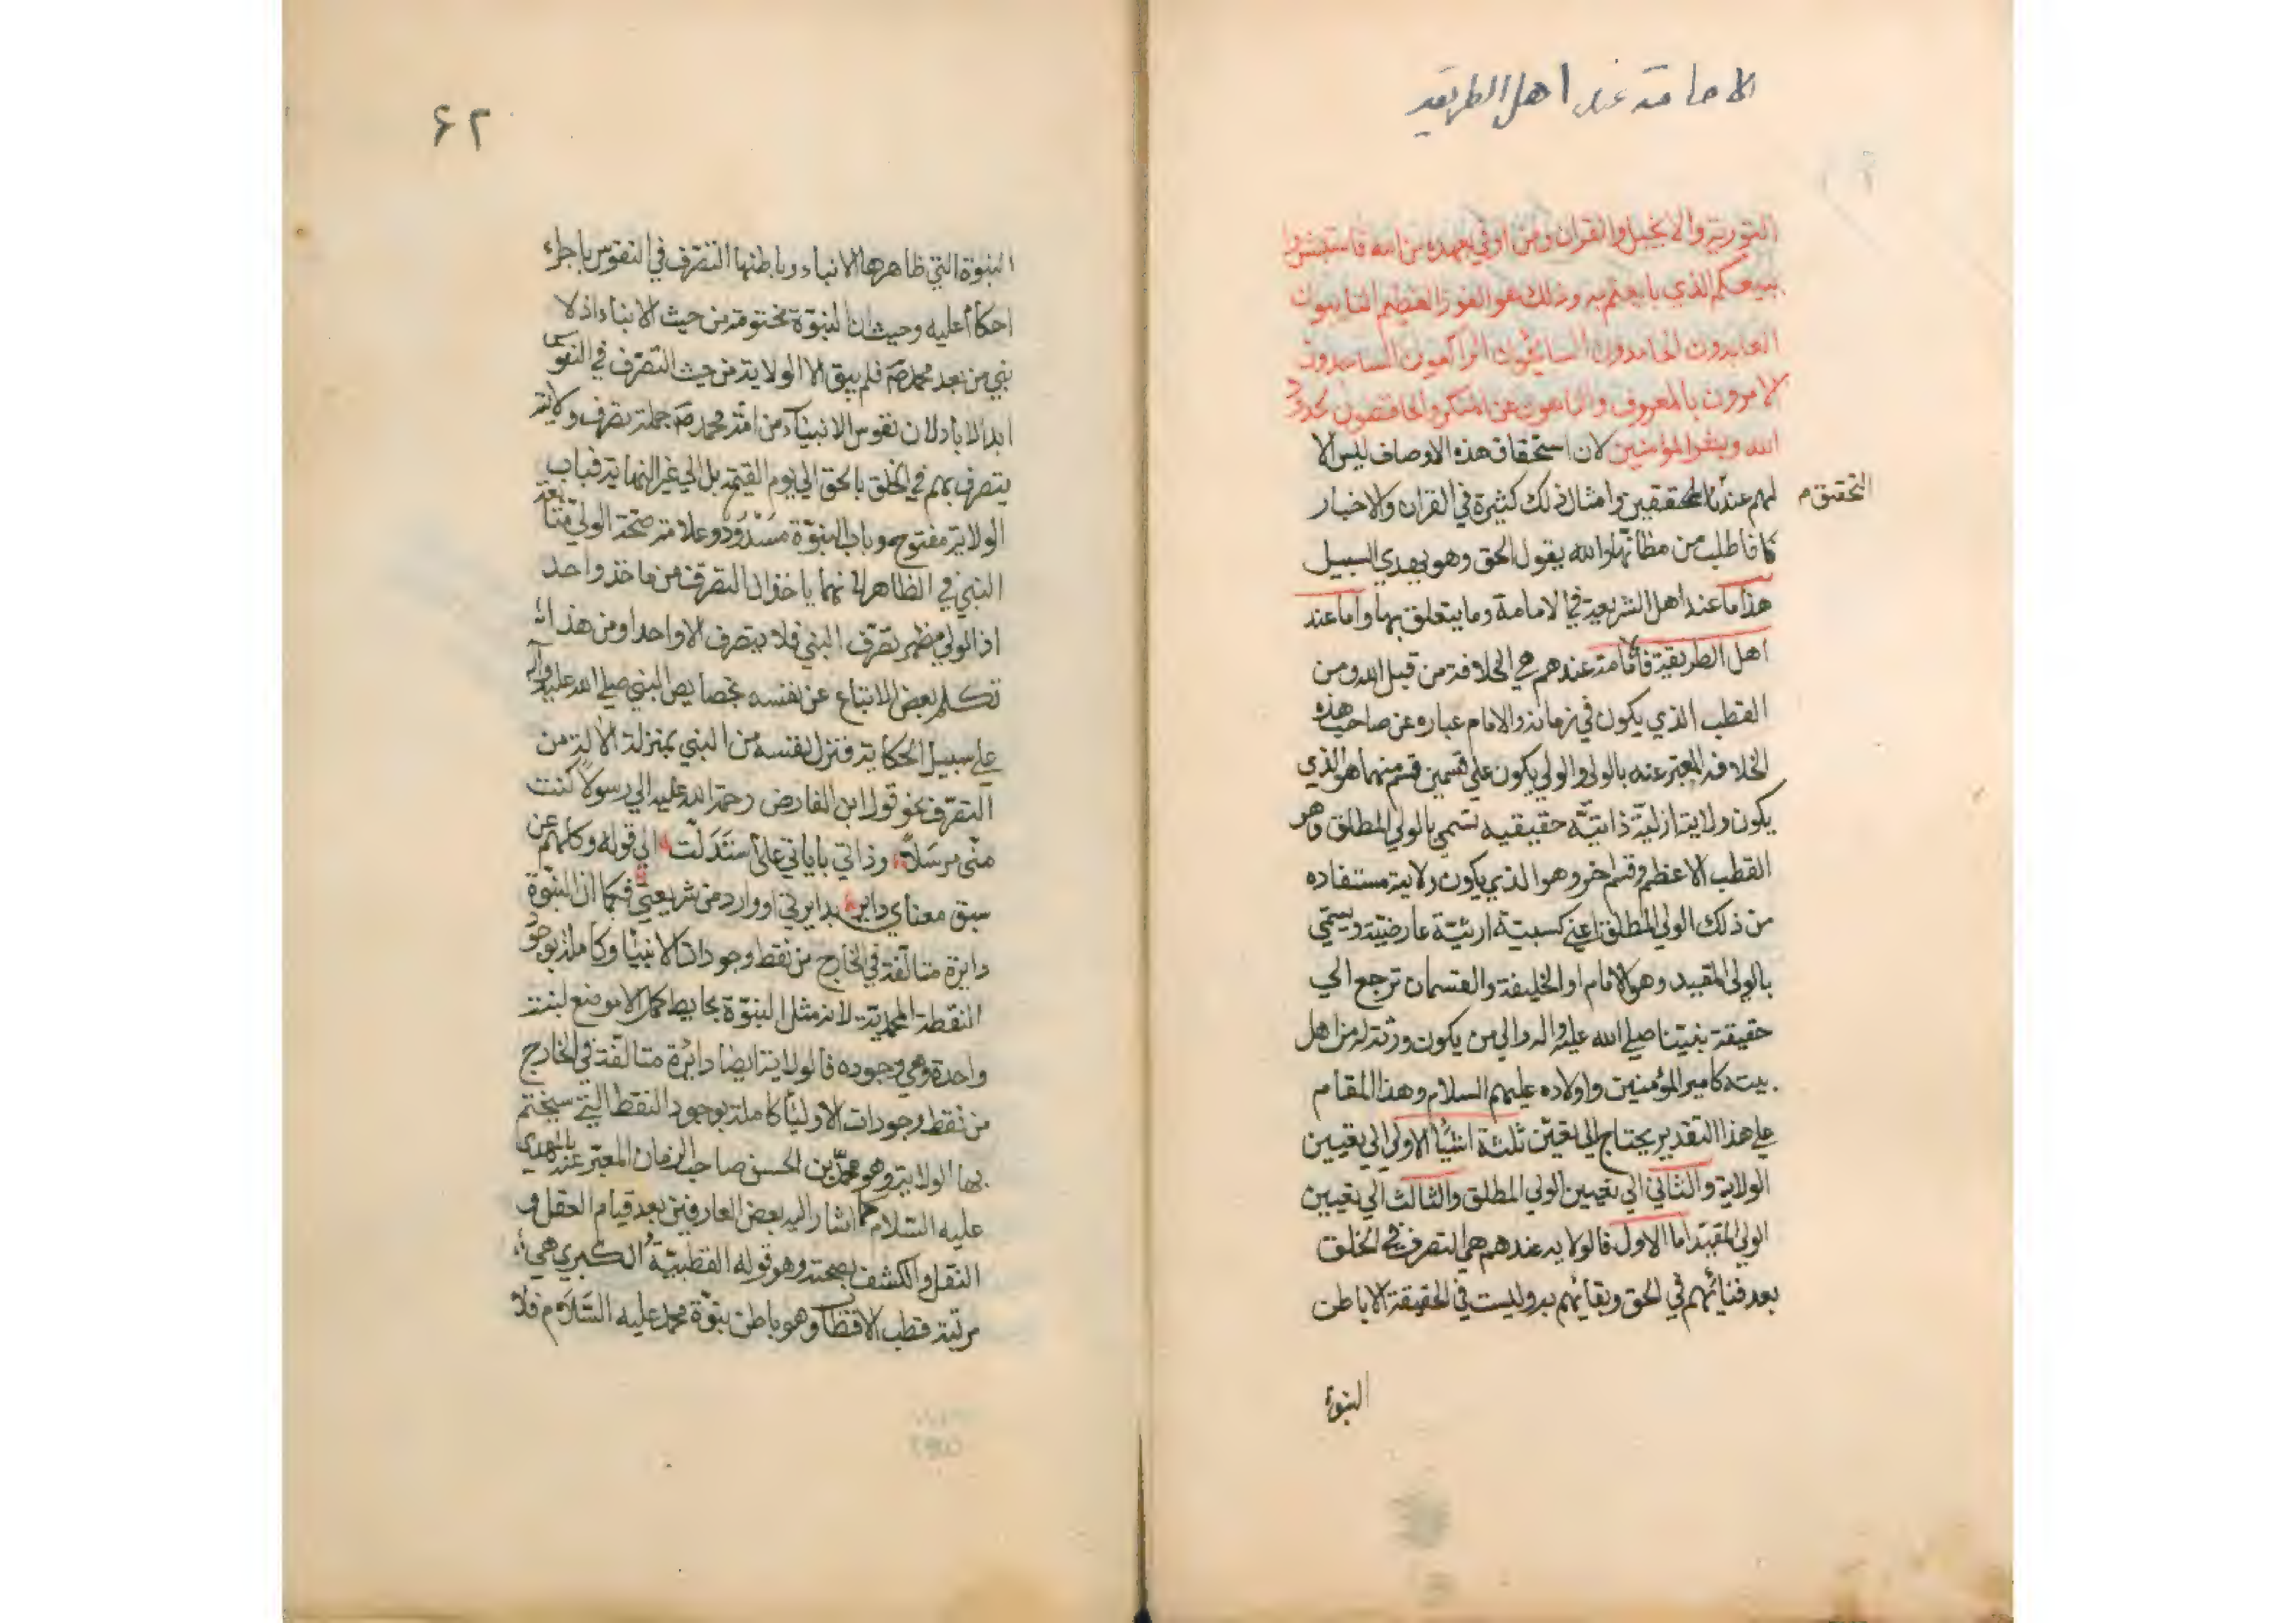 الامامة عند اهل الطريقة
التورية والانجيل والقران ومن اوفي بعهده من الله فاستبشروا
ببيعكم الذي بايعتم به وذلك هو الفوز العظيم التايبون
العابدون الحامدون السائحون الراكعون الساجدون
الامرون بالمعروف والناهون عن المنكر والحافظون لحدود
الله وبشر المؤمنين لان استحقاق هذه الاوصاف ليس الا
لهم عندنا المحققين وامثال ذلك كثيرة في القران والاخبار
التحقيق م
فاطلب من مظانها والله يقول الحق وهو يهدي السبيل
هذا ما عند اهل الشريعة في الامامة وما يتعلق بها واما عند
اهل الطريقة فالامامة عندهم هي الخلافة من قبل الله ومن
القطب الذي يكون في زمانه والامام عباره عن صاحب هذه
الخلافة المعبر عنه بالولي والولي يكون علي قسمين قسم منهما هو الذي
يكون ولايته ازلية ذاتيّة حقيقيه تسمي بالولي المطلق وهو
القطب الاعظم وقسم اخر وهو الذي يكون ولايته مستفاده
من ذلك الولي المطلق اعني كسبيته ارثيّة عارضيّة ويسمّي
بالولي المقيد وهو الامام او الخليفة والقسمان ترجع الي
حقيقة نبيّنا صلي الله عليه واله والي من يكون ورثة له من اهل
بيته كامير المؤمنين واولاده عليهم السلام وهذا المقام
علي هذا التقدير يحتاج الي تعيّن ثلثة اشيأ الاولي الي تعيين
الولاية والثاني الي تعيين الولي المطلق والثالث الي تعيين
الولي المقيد اما الاول فالولايه عندهم هي التصرف في الخلق
بعد فنائهم في الحق وبقائهم به وليست في الحقيقة الا باطن
النبوة
۶۲
النبوة التي ظاهرها الانباء وباطنها التصرف في النفوس باجراء
احكام عليه وحيث ان النبوّة مختومة من حيث الانباء اذ لا
نبي من بعد محمد صم فلم يبق الا الولاية من حيث التصرف في النفوس
ابد الاباد لان نفوس الانبيآء من امّة محمد صم جملة تصرف ولايته
يتصرف بهم في الخلق بالحق الي يوم القيمة بل الي غير النهاية فباب
الولاية مفتوح وباب النبوّة مَسْدُود وعلامة صحّة الولي متابعة
النبي في الظاهر لانهما ياخذان التصرف من ماخذ واحد
اذ الولي مظهر تصرّف النبي فلا يتصرف الا واحدا ومن هذا
تكلم بعض الاتباع عن نفسه بخصايص النبي صلي الله عليه وآله
علي سبيل الحكاية فنزل نفسه من النبي بمنزلة الآلة من
التصرّف نحو قول ابن الفارض رحمة الله عليه الي رسولًا كنت
منّي مرسَلاً وذاتي باياتي عليّ استَدَلّت الي قوله وكلهم عن
سبق معناي داير بدايرتي او وارد من شريعتي فكما ان النبّوة
دايرة متالّفة في الخارج من نقط وجودات الانبيأ وكاملة بوجود
النقطة المحمديّة لانه مثل النبوّة بحايط كمل الا موضع لبنة
واحدة وهي وجوده فالولاية ايضا دائرة متالّفة في الخارج
من نقط وجودات الاوليأ كاملة بوجود النقط التي سيختم
بها الولاية وهو محمّد بن الحسن صاحب الزمان المعبّر عنه بالمهدي
عليه السّلام كما اشار اليه بعض العارفين بعد قيام العقل و
النقل والكشف بصحته وهو قوله القطبيّة الكبري هي
مرتبة قطب الاقطاب وهو باطن نبوّة محمد عليه السَّلَام فلا